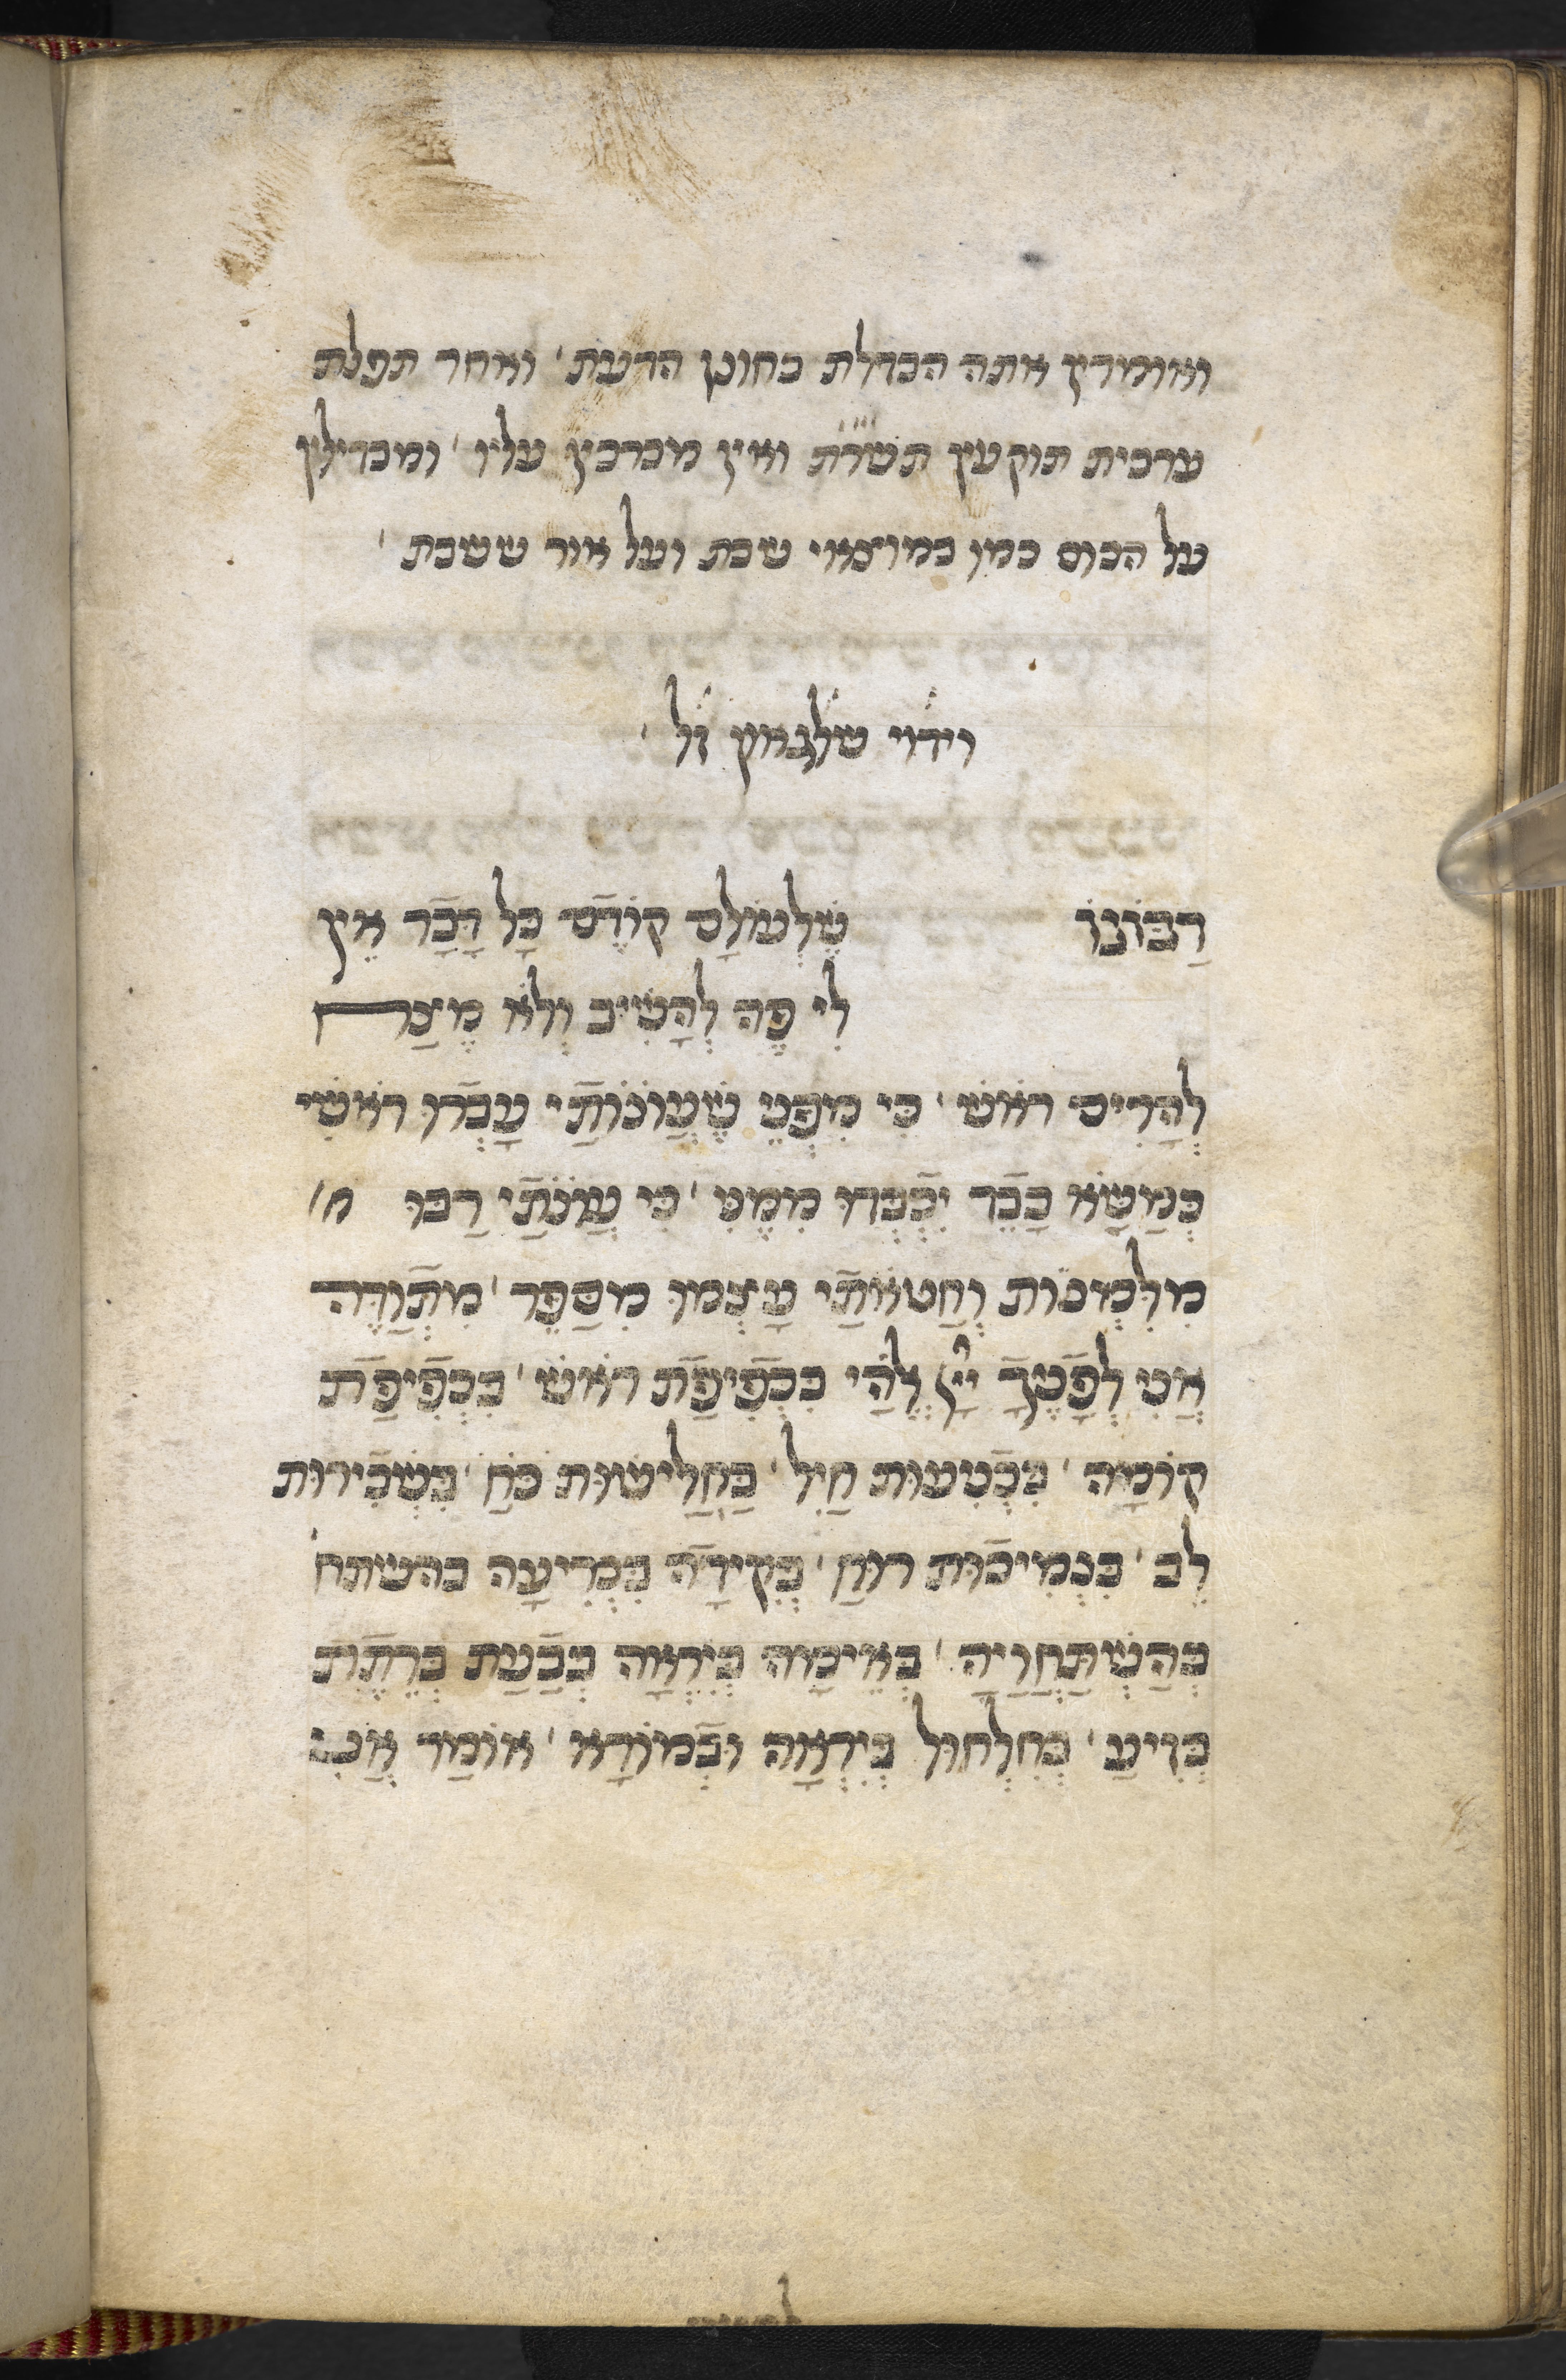 ואומרים אתה הבדלת בחונן הדעת׳ ואחר תפלת
ערבית תוקעין תשר״ת ואין מברכין עליו׳ ומבדילין
על הכוס כמו במוצאי שבת ועל אור ששבת׳
וידוי שלגאון ז״ל׳
רַבּוֹנוֹ שֶׁלְעוֹלָם קוֹדֶם כָּל דָּבָר אֵין
לִי פֶה לְהָשִׁיב וְלֹא מֶצַח
לְהָרִים רֹאשׁ׳ כִּי מִפְּנֵי שֶׁעֲוֹנֹתַי עָבְרוּ רֹאשִׁי
כְּמַשָּׂא כָבֵד יִכְבְּדוּ מִמֶּנִּי׳ כִּי עֲוֹנֹתַי רַבּוּ מ׳
מִלִּמְנוֹת וְחַטֹּאתַי עָצְמוּ מִסַּפֵּר׳ מִתְוַדֶּה
אֲנִי לְפָנֶיךָ יְיָ אֱלֹהַי בִּכְפִיפַת רֹאשׁ׳ בִּכְפִיפַת
קוֹמָה׳ בִּכְנִיעוּת חַיִל׳ בַּחֲלִישׁוּת כֹּחַ׳ בִּשְׁבִירוּת
לֵב׳ בִּנְמִיכוּת רוּחַ׳ בְּקִידָה בִּכְרִיעָה בהשתח׳
בְּהִשְׁתַּחֲוָיָה׳ בְּאֵימָה בְּיִרְאָה בְּבַעַת בְּרֶתֶת
בְּזִיעַ׳ בְּחִלְחוּל בְּיִרְאָה וּבְמוֹרָא׳ אוֹמַר אֲנִי